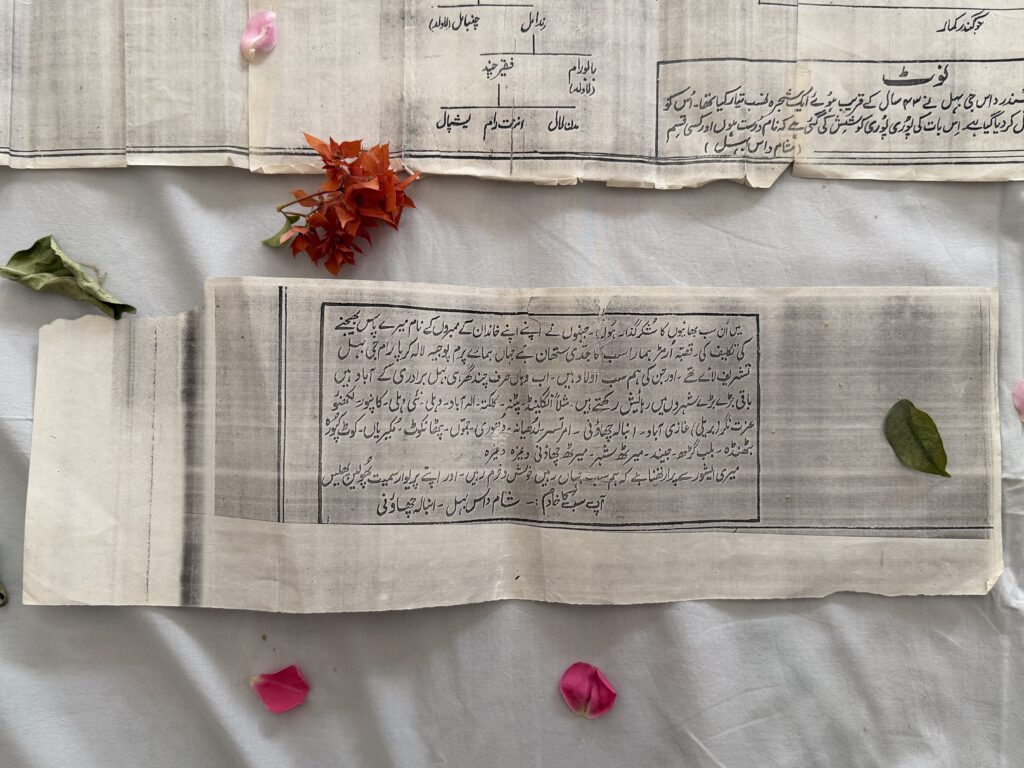 جوگندر کمار
نندامل
چنبامل (لاولد)
بالورام
(لاولد)
فقیر چند
مدن لال
امرت رام
یشپال
نوٹ
سندر داس جی بہل نے ۴۳ سال کے قریب ہوئے ایک شجرہ نسب تیار کیا تھا۔ اُس کو
کر دیا گیا ہے۔ اِس بات کی پوری پوری کوشش کی گئی ہے کہ نام درست ہوں اور کسی قسم
(شام داس بہل)
میں اُن سب بھائیوں کا شکر گذار ہوں۔ جنہوں نے اپنے اپنے خاندان کے ممبروں کے نام میرے پاس بھیجنے
کی تکلیف کی۔ قصبہ اُرمڑ ہمارا سب کا جدّی ستھان ہے جہاں ہمارے پرم پوجیہ لالہ کرپا رام جی بہل
تشریف لائے تھے۔ اور جن کی ہم سب اولاد ہیں۔ اب وہاں صرف چند گھر ہی بہل برادری کے آباد ہیں
باقی بڑے بڑے شہروں میں رہائش رکھتے ہیں۔ مثلاً انگلینڈ۔ پٹنہ۔ کلکتہ۔ الہ آباد۔ دہلی۔ نئی دہلی۔ کانپور۔ لکھنؤ
عزت نگر (بریلی) غازی آباد۔ انبالہ چھاؤنی۔ امرتسر۔ لدھیانہ۔ دھوری۔ جموں۔ پٹھانکوٹ۔ مکیریاں۔ کوٹ کپورہ
بھٹنڈہ۔ بلب گڑھ۔ جیند۔ میرٹھ شہر۔ میرٹھ چھاؤنی وغیرہ وغیرہ
میری ایشور سے پرارتھنا ہے کہ ہم سب جہاں رہیں خوش و خرم رہیں۔ اور اپنے پریوار سمیت پھولیں پھلیں
آپ سب کا خادم :۔ شام داس بہل۔ انبالہ چھاؤنی